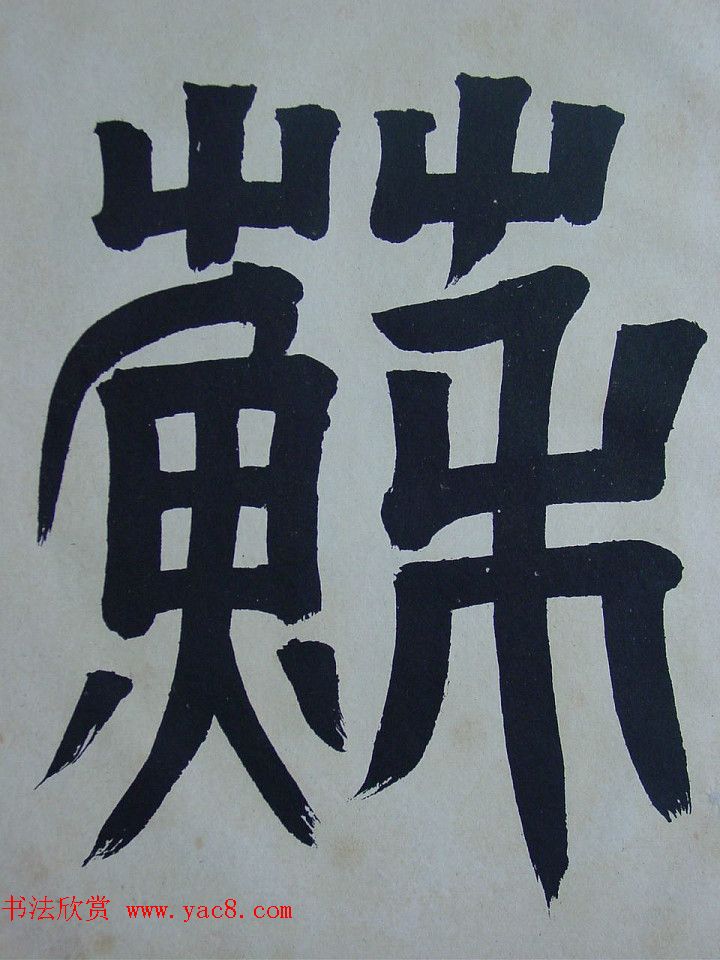 蘇
书法欣赏 www.yac8.com